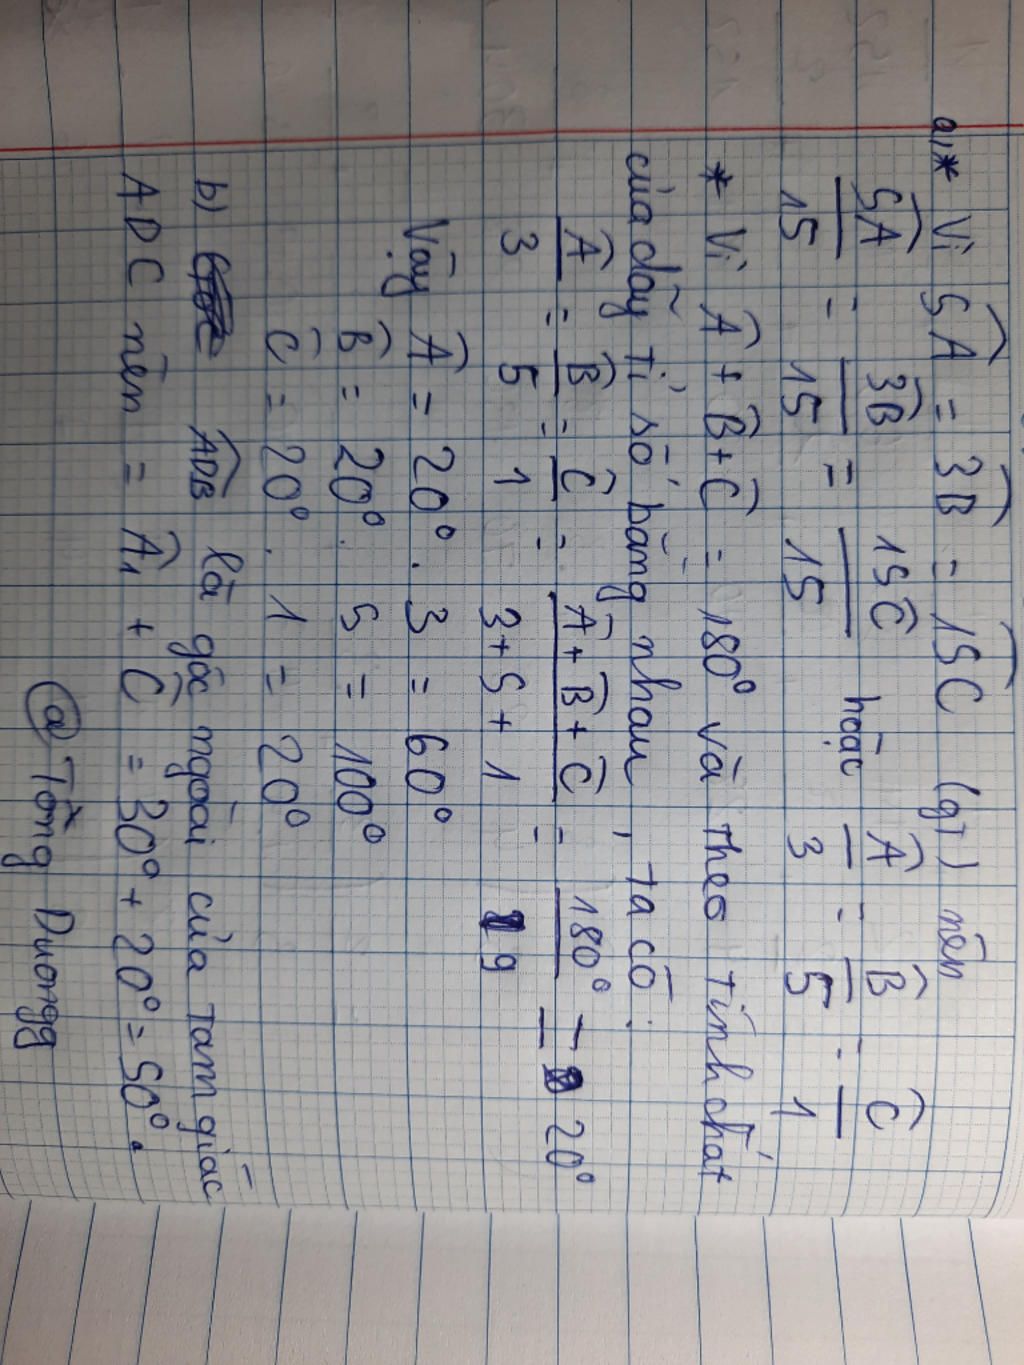 a,* Vì 5Â = 3B̂ = 15Ĉ (gt) nên
5Â/15 = 3B̂/15 = 15Ĉ/15 hoặc Â/3 = B̂/5 = Ĉ/1
* Vì Â + B̂ + Ĉ = 180° và theo tính chất
của dãy tỉ số bằng nhau, ta có:
Â/3 = B̂/5 = Ĉ/1 = Â + B̂ + Ĉ/3+5+1 = 180°/9 = 20°
Vậy Â = 20°. 3 = 60°
B̂ = 20°. 5 = 100°
Ĉ = 20°. 1 = 20°
b) ADB là góc ngoài của tam giác
ADC nên = Â₁ + Ĉ = 30° + 20° = 50°.
@Tòng Duongg